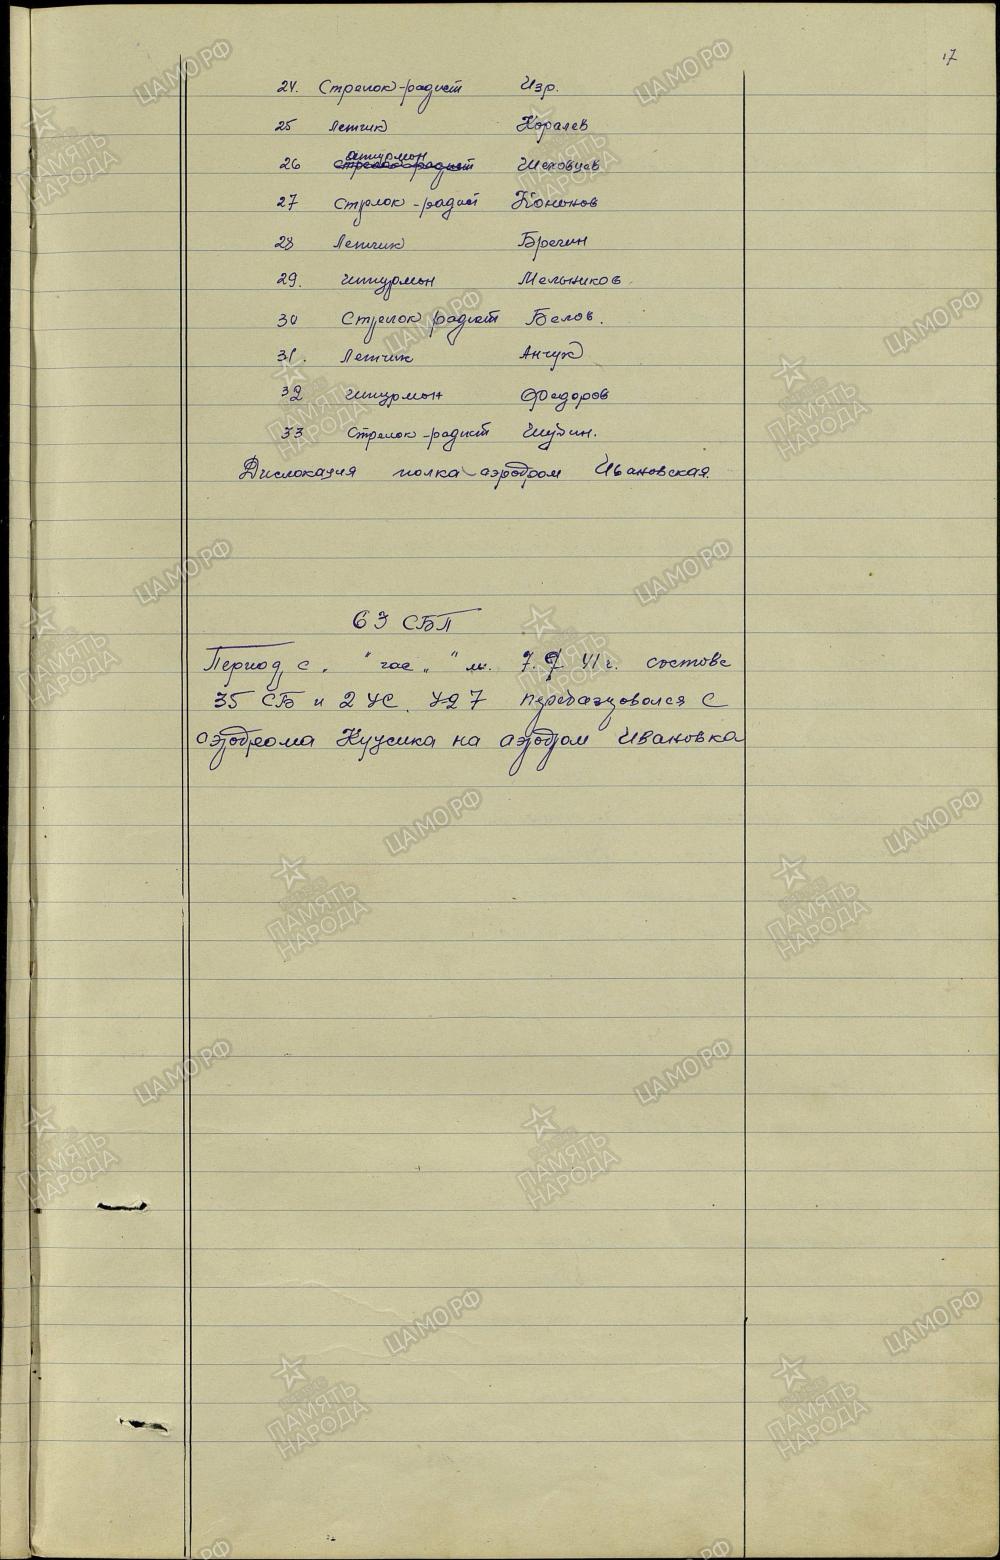 17
24. Стрелок-радист Изр.
25 Летчик Королев
26 штурман Шеховцев
27 Стрелок-радист Кононов
28 Летчик Брегин
29. Штурман Мельников.
30 Стрелок радист Белов.
31. Летчик Анчук
32 Штурман Федоров
33 Стрелок-радист Шубин.
Дислокация полка-аэродром Ивановская.
63 СБП
Период с „ " час „ " м. 7. 7. 41 г. составе
35 СБ и 2 УС. У-2 7 перебазировался с
аэродрома Куусика на аэродром Ивановка
ЦАМО РФ
ПАМЯТЬ НАРОДА